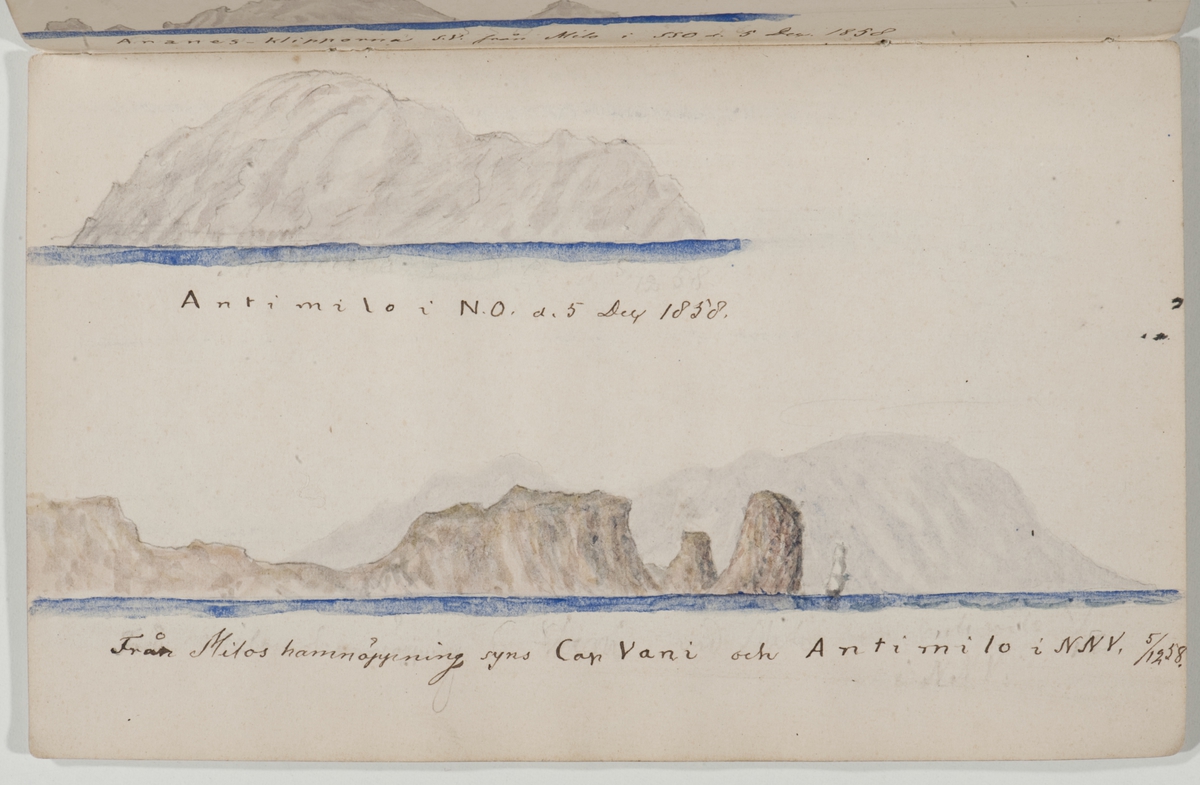 Ananes-klipporna S.V. från Milo i SSO d. 5 Dec 1858
Antimilo i N.O. d. 5 Dec 1858.
Från Milos hamnöppning syns Cap Vani och Antimilo i NNV. 5/12 58.